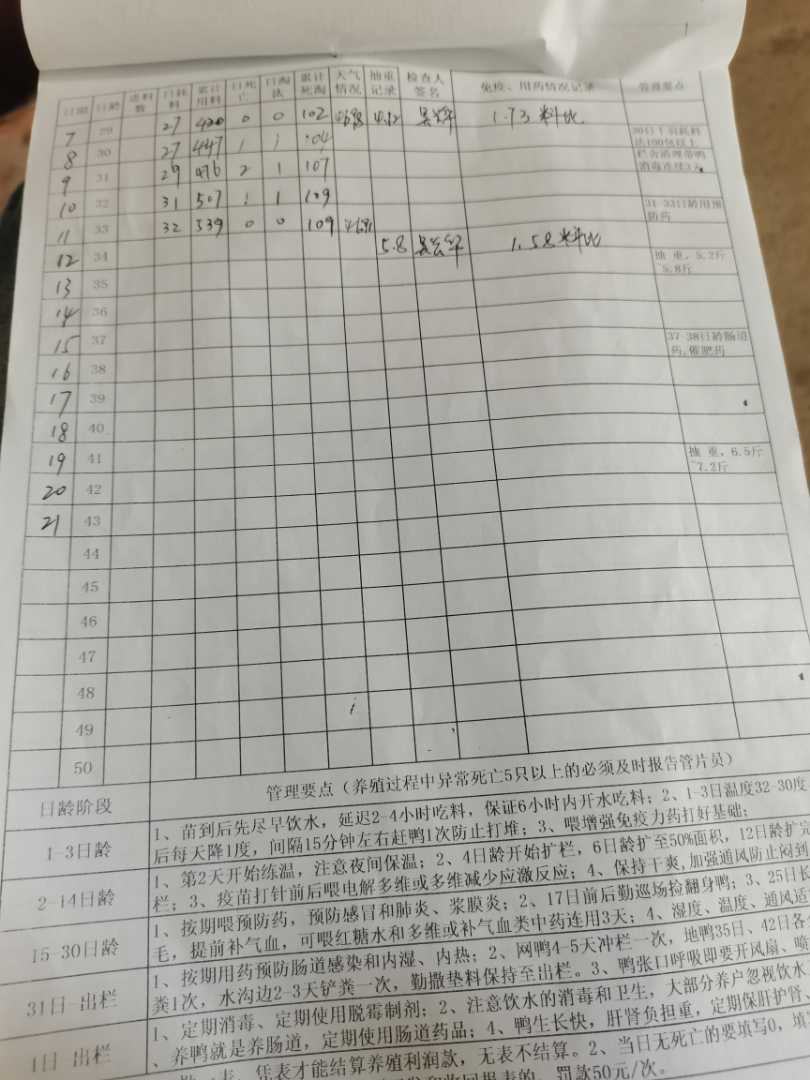 日期 日龄 进料数 日耗料 累计用料 日死亡 日淘汰 累计死淘 天气情况 抽重记录 检查人签名 免疫、用药情况记录 管理要点
7 29 27 420 0 0 102 1.73 料比
8 30 27 447 1 1 104 30日千羽耗料达190包以上
9 31 29 476 2 1 107 栏舍清理带鸭消毒连续3天
10 32 31 507 1 1 109 31-33日龄用预防药
11 33 32 539 0 0 109
12 34 5.8 1.58 料比 抽重，5.2斤~5.8斤
13 35
14 36
15 37 37-38日龄肠道药,催肥药
16 38
17 39
18 40
19 41 抽重，6.5斤~7.2斤
20 42
21 43
44
45
46
47
48
49
50
日龄阶段 管理要点（养殖过程中异常死亡5只以上的必须及时报告管片员）
1-3日龄 1、苗到后先尽早饮水，延迟2-4小时吃料，保证6小时内开水吃料；2、1-3日温度32-30度
后每天降1度，间隔15分钟左右赶鸭1次防止打堆；3、喂增强免疫力药打好基础；
2-14日龄 1、第2天开始练温，注意夜间保温；2、4日龄开始扩栏，6日龄扩至50%面积，12日龄扩完
栏；3、疫苗打针前后喂电解多维或多维减少应激反应；4、保持干爽,加强通风防止闷到
15-30日龄 1、按期喂预防药，预防感冒和肺炎、浆膜炎；2、17日前后勤巡场捡翻身鸭；3、25日长
毛，提前补气血，可喂红糖水和多维或补气血类中药连用3天；4、湿度、温度、通风适
31日-出栏 1、按期用药预防肠道感染和内湿、内热；2、网鸭4-5天冲栏一次，地鸭35日、42日各
粪1次，水沟边2-3天铲粪一次，勤撒垫料保持至出栏。3、鸭张口呼吸即要开风扇、喷
1日 出栏 1、定期消毒、定期使用脱霉制剂；2、注意饮水的消毒和卫生，大部分养户忽视饮水
、养鸭就是养肠道，定期使用肠道药品；4、鸭生长快，肝肾负担重，定期保肝护肾、
一表，凭表才能结算养殖利润款，无表不结算。2、当日无死亡的要填写0，填
和收回报表的，罚款50元/次。